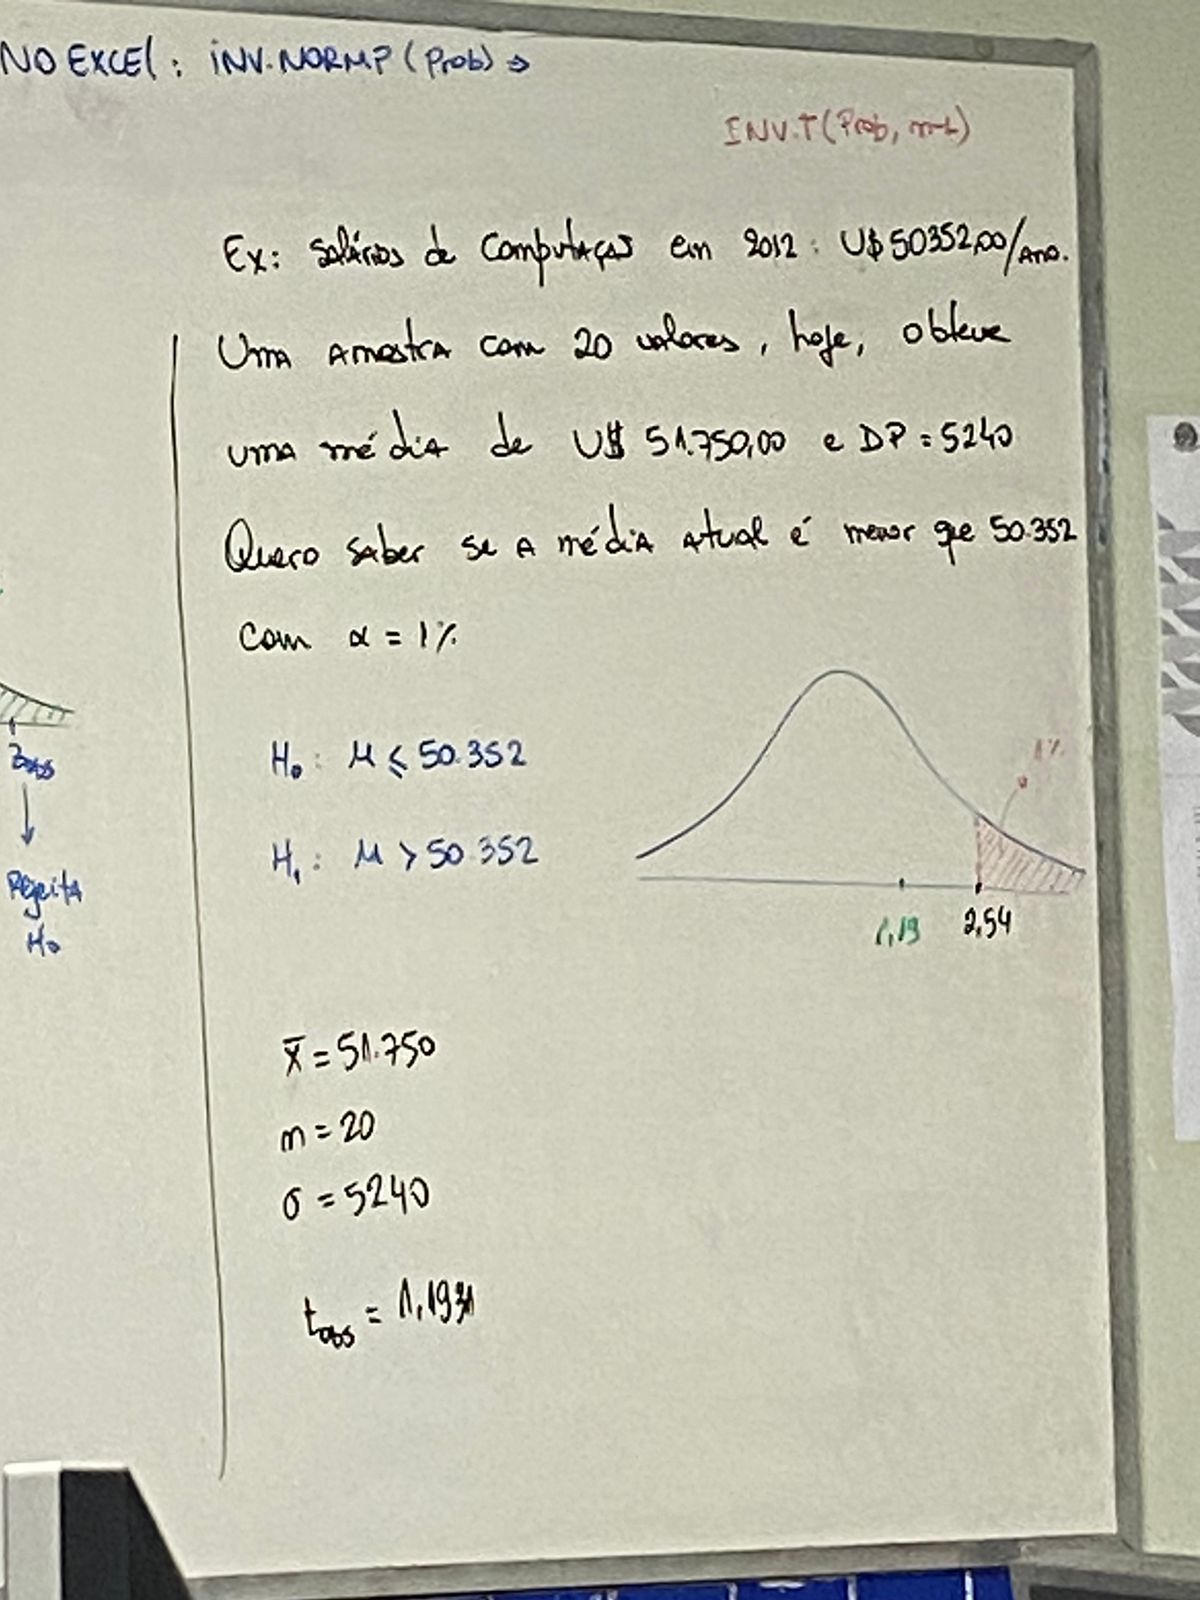 NO EXCEL: INV.NORMP (Prob) →
INV.T(Prob, n-1)
Ex: Salários de Computaças em 2012: U$ 50352,00/Ano.
Uma amostra com 20 valores, hoje, obteve
uma média de U$ 51.750,00 e DP = 5240
Quero saber se a média atual é menor que 50.352
com α = 1%
H₀: μ ≤ 50.352
H₁: μ > 50.352
1%
1,19 2,54
Zobs
↓
Rejeita
H₀
x̄ = 51.750
n = 20
σ = 5240
tobs = 1,1931